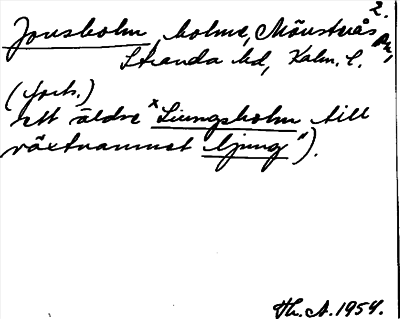 2.
Jonsholm, holme, Mönsterås sn,
Stranda hd, Kalm. l.
(forts.)
ett äldre *Liungsholm till
växtnamnet ljung").
Th. A. 1954.